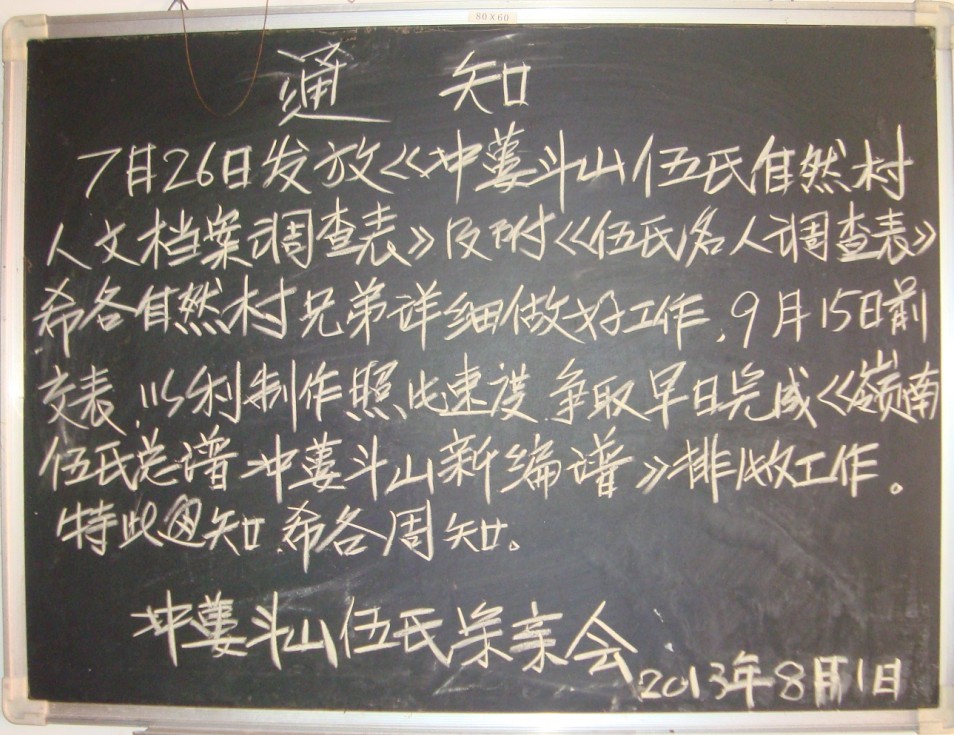 80X60
通 知
7月26日发放《冲蒌斗山伍氏自然村
人文档案调查表》及附《伍氏名人调查表》
希各自然村兄弟详细做好工作,9月15日前
交表,以利制作照此速度争取早日完成《嶺南
伍氏总谱冲蒌斗山新编谱》排版工作。
特此通知,希各周知。
冲蒌斗山伍氏宗亲会
2013年8月1日